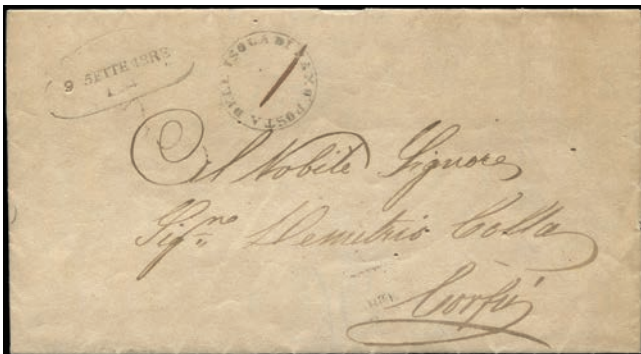 9 SETTEMBRE
POSTA DELL ISOLA DI PAXO
Al Nobile Signore
Sigr. no Demetrio Colla
Corfù